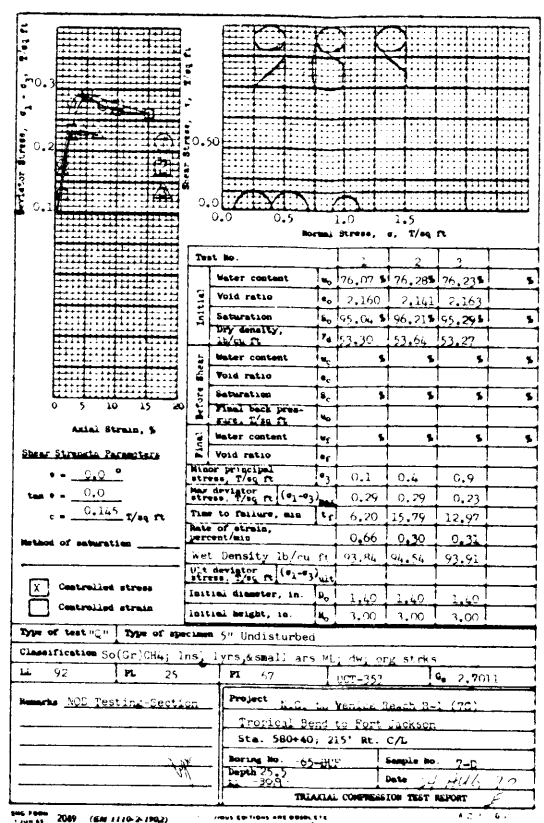 Deviator Stress, σ1 - σ3, T/sq ft
0.3
0.2
0.1
0 5 10 15 20
Axial Strain, %
Shear Stress, τ, T/sq ft
0.50
0.0
0.0 0.5 1.0 1.5
Normal Stress, σ, T/sq ft
Shear Strength Parameters
φ = 0.0 °
tan φ = 0.0
c = 0.145 T/sq ft
Method of saturation
X Controlled stress
Controlled strain
Test No. 1 2 3
Initial
Water content w0 76.07 % 76.28 % 76.23 % %
Void ratio e0 2.160 2.141 2.163
Saturation S0 95.04 % 96.21 % 95.29 % %
Dry density, lb/cu ft γd 53.30 53.64 53.27
Before Shear
Water content wc % % % %
Void ratio ec
Saturation Sc % % % %
Final back pressure, T/sq ft u0
Final
Water content wf % % % %
Void ratio ef
Minor principal stress, T/sq ft σ3 0.1 0.4 0.9
Max deviator stress, T/sq ft (σ1-σ3)max 0.29 0.29 0.23
Time to failure, min tf 6.20 15.79 12.97
Rate of strain, percent/min 0.66 0.30 0.31
Wet Density lb/cu ft 93.84 94.54 93.91
Ult deviator stress, T/sq ft (σ1-σ3)ult
Initial diameter, in. D0 1.40 1.40 1.40
Initial height, in. H0 3.00 3.00 3.00
Type of test "Q" Type of specimen 5" Undisturbed
Classification So(Gr)CH4; lns, lyrs,&small ars ML; dw; org strks
LL 92 PL 25 PI 67 UCT-353 Gs 2.7011
Remarks NOD Testing-Section
Project N.O. to Venice Reach B-1 (7C)
Tropical Bend to Fort Jackson
Sta. 580+40; 215' Rt. C/L
Boring No. 65-UCP Sample No. 7-D
Depth 25.5
El -30.9
Date
TRIAXIAL COMPRESSION TEST REPORT
ENG FORM 2089 (EM 1110-2-1902) PREVIOUS EDITIONS ARE OBSOLETE